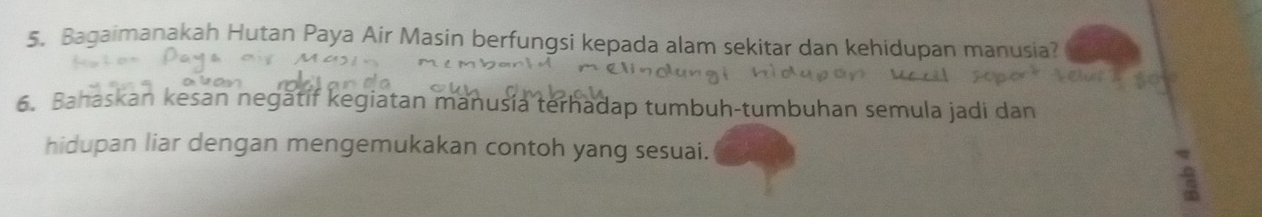 5. Bagaimanakah Hutan Paya Air Masin berfungsi kepada alam sekitar dan kehidupan manusia?
Hutan Paya air Masin membantu melindungi hidupan kecil seperti
yang akan oleh ombak
6. Bahaskan kesan negatif kegiatan manusia terhadap tumbuh-tumbuhan semula jadi dan
hidupan liar dengan mengemukakan contoh yang sesuai.
Bab 4